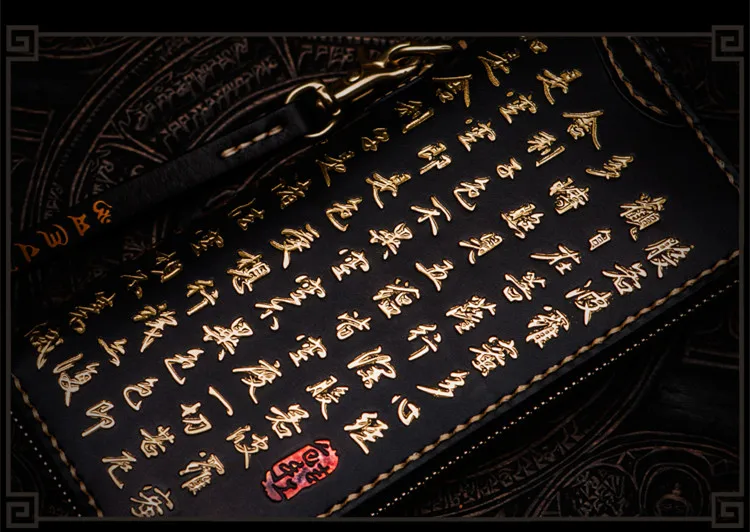 般若波羅蜜多心經
觀自在菩薩行深般若波羅蜜
多時照見五蘊皆空度一切苦厄
舍利子色不異空空不異色色即
是空空即是色受想行識亦復
是舍利子是諸法空相不